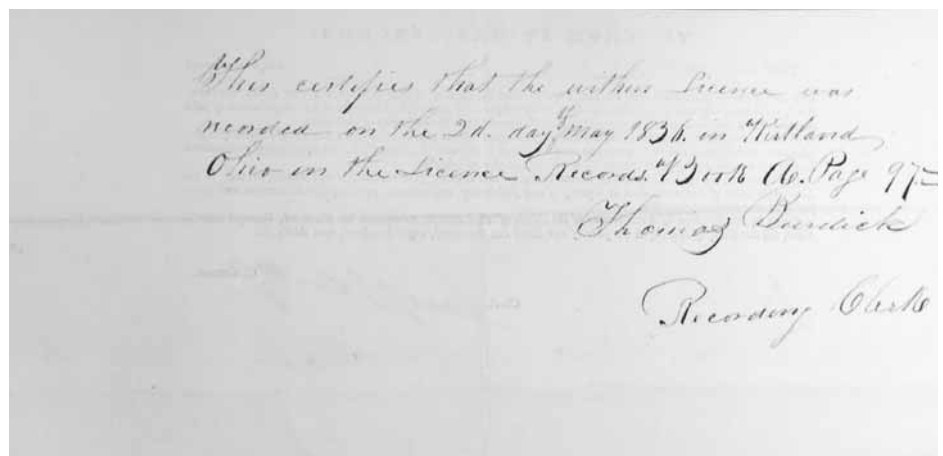 This certifies that the within Licence was
recorded on the 2d. day of May 1836. in Kirtland
Ohio in the Licence Records Book A. Page 97
Thomas Burdick
Recording Clerk